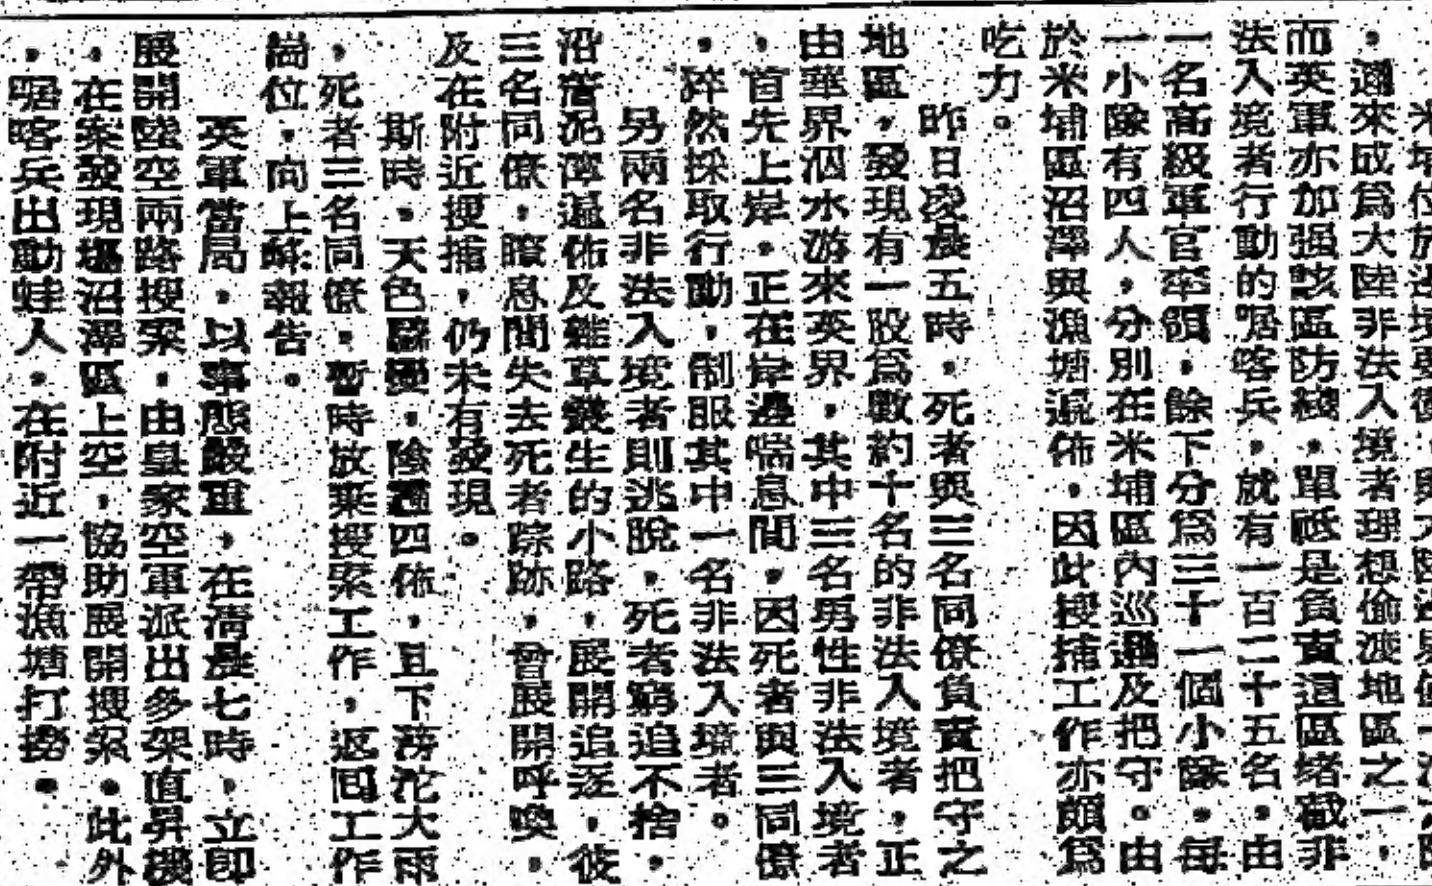 ，邇來成爲大陸非法入境者理想偷渡地區之一，
而英軍亦加强該區防綫，單祗是負責這區堵截非
法入境者行動的啹喀兵，就有一百二十五名，由
一名高級軍官率領，餘下分爲三十一個小隊，每
一小隊有四人，分別在米埔區內巡邏及把守。由
於米埔區沼澤與漁塘遍佈，因此搜捕工作亦頗爲
吃力。
昨日凌晨五時，死者與三名同僚負責把守之
地區，發現有一股爲數約十名的非法入境者，正
由華界泅水游來英界，其中三名男性非法入境者
首先上岸，正在岸邊喘息間，因死者與三同僚
，猝然採取行動，制服其中一名非法入境者。
另兩名非法入境者則逃脫，死者窮追不捨，
沿着泥濘遍佈及雜草叢生的小路，展開追逐，彼
三名同僚，瞭息間失去死者踪跡，曾展開呼喚，
及在附近搜捕，仍未有發現。
斯時，天色驟變，陰霾四佈，且下滂沱大雨
，死者三名同僚，暫時放棄搜索工作，返回工作
崗位，向上峰報告。
英軍當局，以事態嚴重，在清晨七時，立即
展開陸空兩路搜索，由皇家空軍派出多架直昇機
，在案發現塲沼澤區上空，協助展開搜索。此外
，啹喀兵出動蛙人，在附近一帶漁塘打撈。